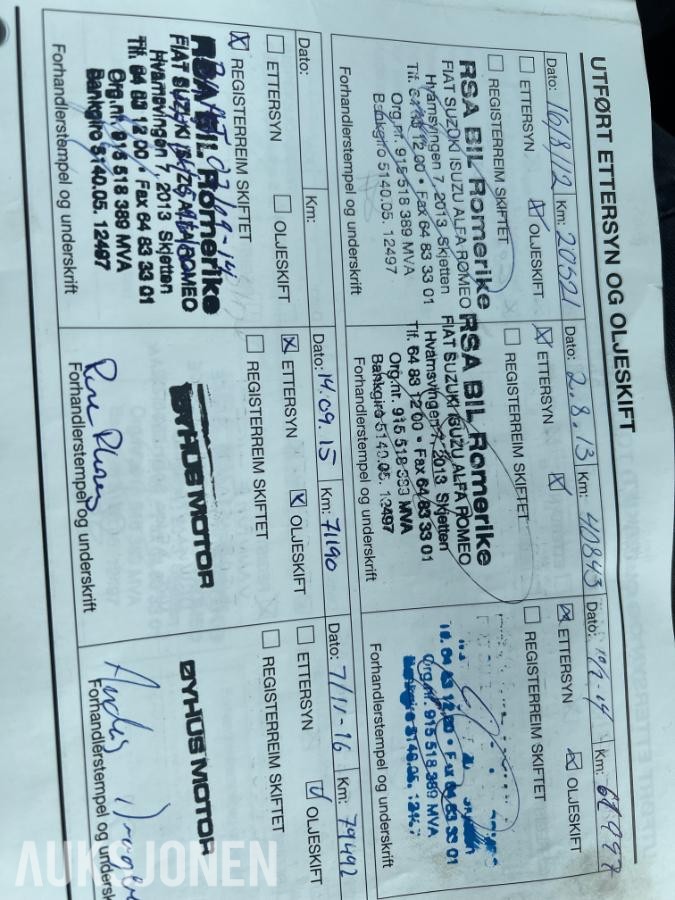 UTFØRT ETTERSYN OG OLJESKIFT
Dato: 16/8/12 Km: 20521
ETTERSYN OLJESKIFT
REGISTERREIM SKIFTET
RSA BIL Romerike
FIAT SUZUKI ISUZU ALFA ROMEO
Hvamsvingen 7, 2013 Skjetten
Tlf. 64 83 12 00 • Fax 64 83 33 01
Org.nr. 915 518 389 MVA
Bankgiro 5140.05. 12497
Forhandlerstempel og underskrift
Dato: 2.8.13 Km: 40843
ETTERSYN
REGISTERREIM SKIFTET
RSA BIL Romerike
FIAT SUZUKI ISUZU ALFA ROMEO
Hvamsvingen 7, 2013 Skjetten
Tlf. 64 83 12 00 • Fax 64 83 33 01
Org.nr. 915 518 389 MVA
Bankgiro 5140.05. 12497
Forhandlerstempel og underskrift
Dato: Km:
ETTERSYN OLJESKIFT
REGISTERREIM SKIFTET
Tlf. 64 83 12 00 • Fax 64 83 33 01
Org.nr. 915 518 389 MVA
Bankgiro 5140.05.
Forhandlerstempel og underskrift
Dato: Km:
ETTERSYN OLJESKIFT
REGISTERREIM SKIFTET
RSA BIL Romerike
FIAT SUZUKI ISUZU ALFA ROMEO
Hvamsvingen 7, 2013 Skjetten
Tlf. 64 83 12 00 • Fax 64 83 33 01
Org.nr. 915 518 389 MVA
Bankgiro 5140.05. 12497
Forhandlerstempel og underskrift
Dato: 14.09.15 Km: 71190
ETTERSYN OLJESKIFT
REGISTERREIM SKIFTET
ØYHUS MOTOR
Forhandlerstempel og underskrift
Dato: 7/11-16 Km: 79492
ETTERSYN OLJESKIFT
REGISTERREIM SKIFTET
ØYHUS MOTOR
Forhandlerstempel og underskrift
AUKSJONEN